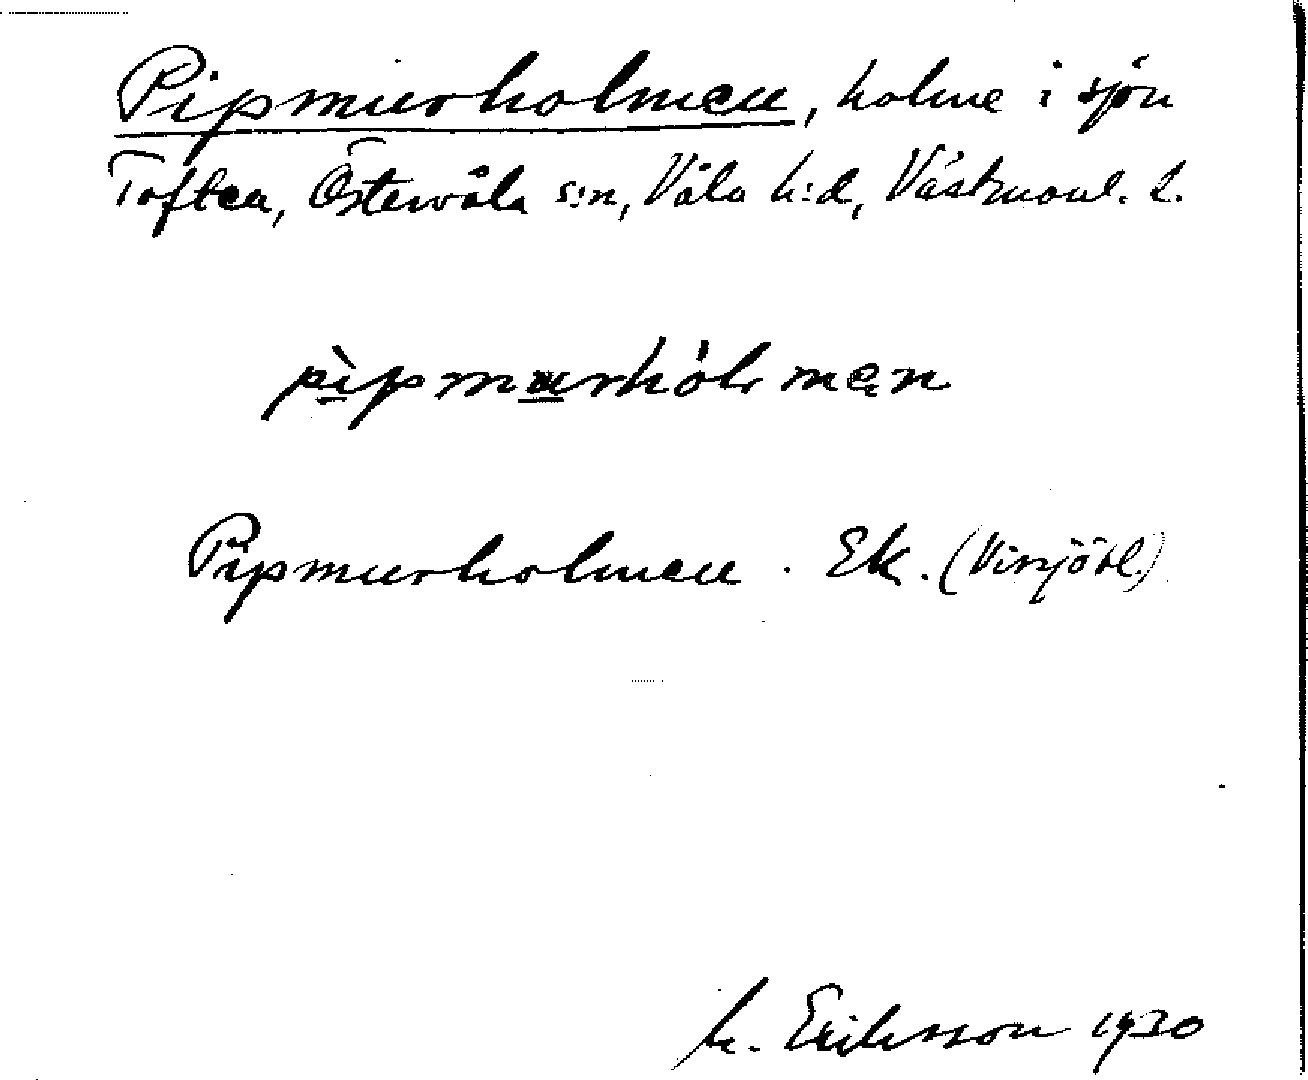 Pipmurholmen, holme i sjön
Toften, Östervåla s:n, Våla h:d, Västmanl. l.
pipmurhólmen
Pipmurholmen. Ek. (Visjöbl.)
M. Eriksson 1930